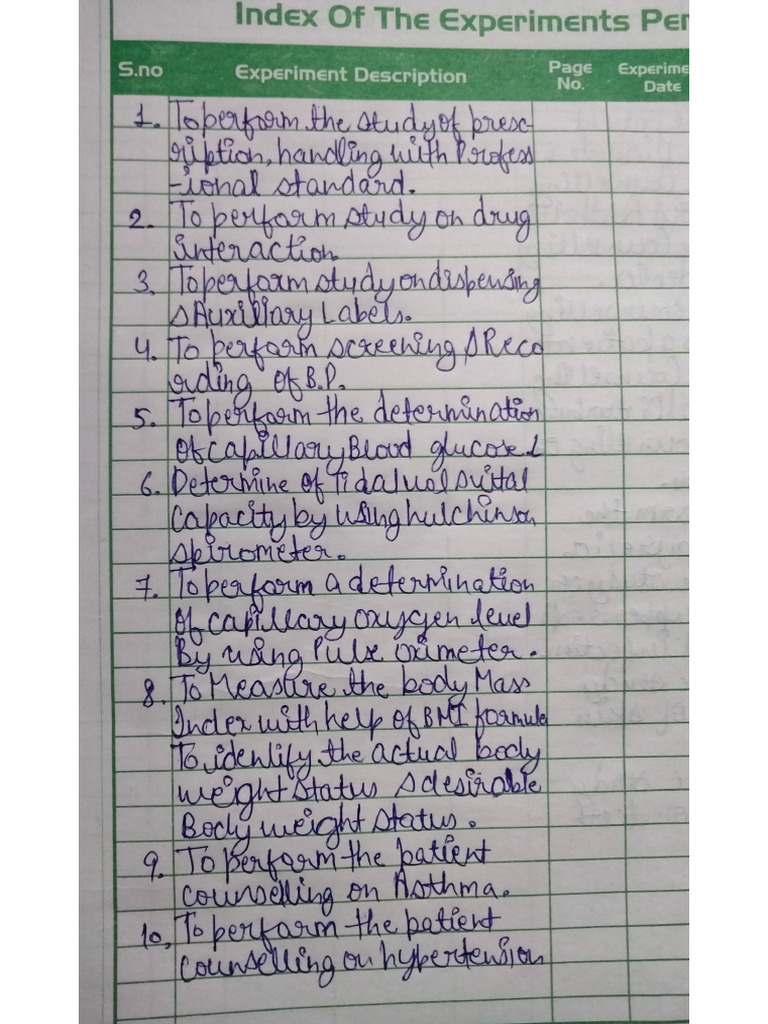 Index Of The Experiments Per
S.no Experiment Description Page No. Experime Date
1. To perform the study of presc-
ription, handling with Profess
-ional standard.
2. To perform study on drug
interaction.
3. To perform study on dispensing
& Auxilliary Labels.
4. To perform screening & Reco
rding of B.P.
5. To perform the determination
of capillary Blood glucose
6. Determine of Tidal vol & vital
capacity by using hutchinson
spirometer.
7. To perform a determination
of capillary oxygen level
By using Pulse oximeter.
8. To Measure the body Mass
Index with help of BMI formula
To identify the actual body
weight status & desirable
Body weight status.
9. To perform the patient
counselling on Asthma.
10. To perform the patient
counselling on hypertension